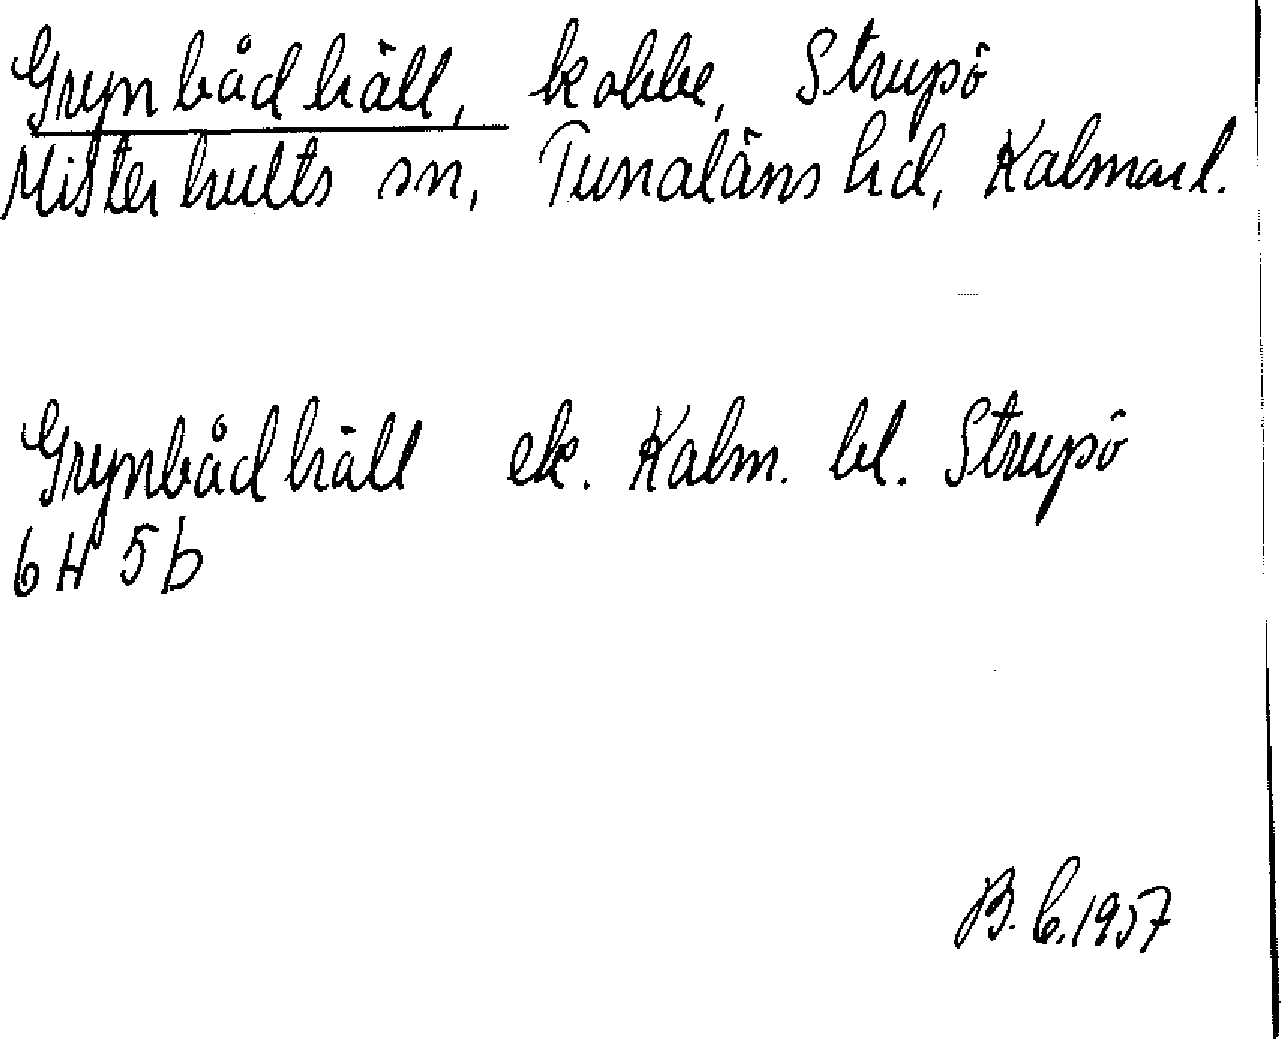 Grynbådhäll, kobbe, Strupö
Misterhults sn, Tunaläns hd, Kalmar l.
Grynbådhäll ek. Kalm. bl. Strupö
6 H 5 b
B. C. 1957